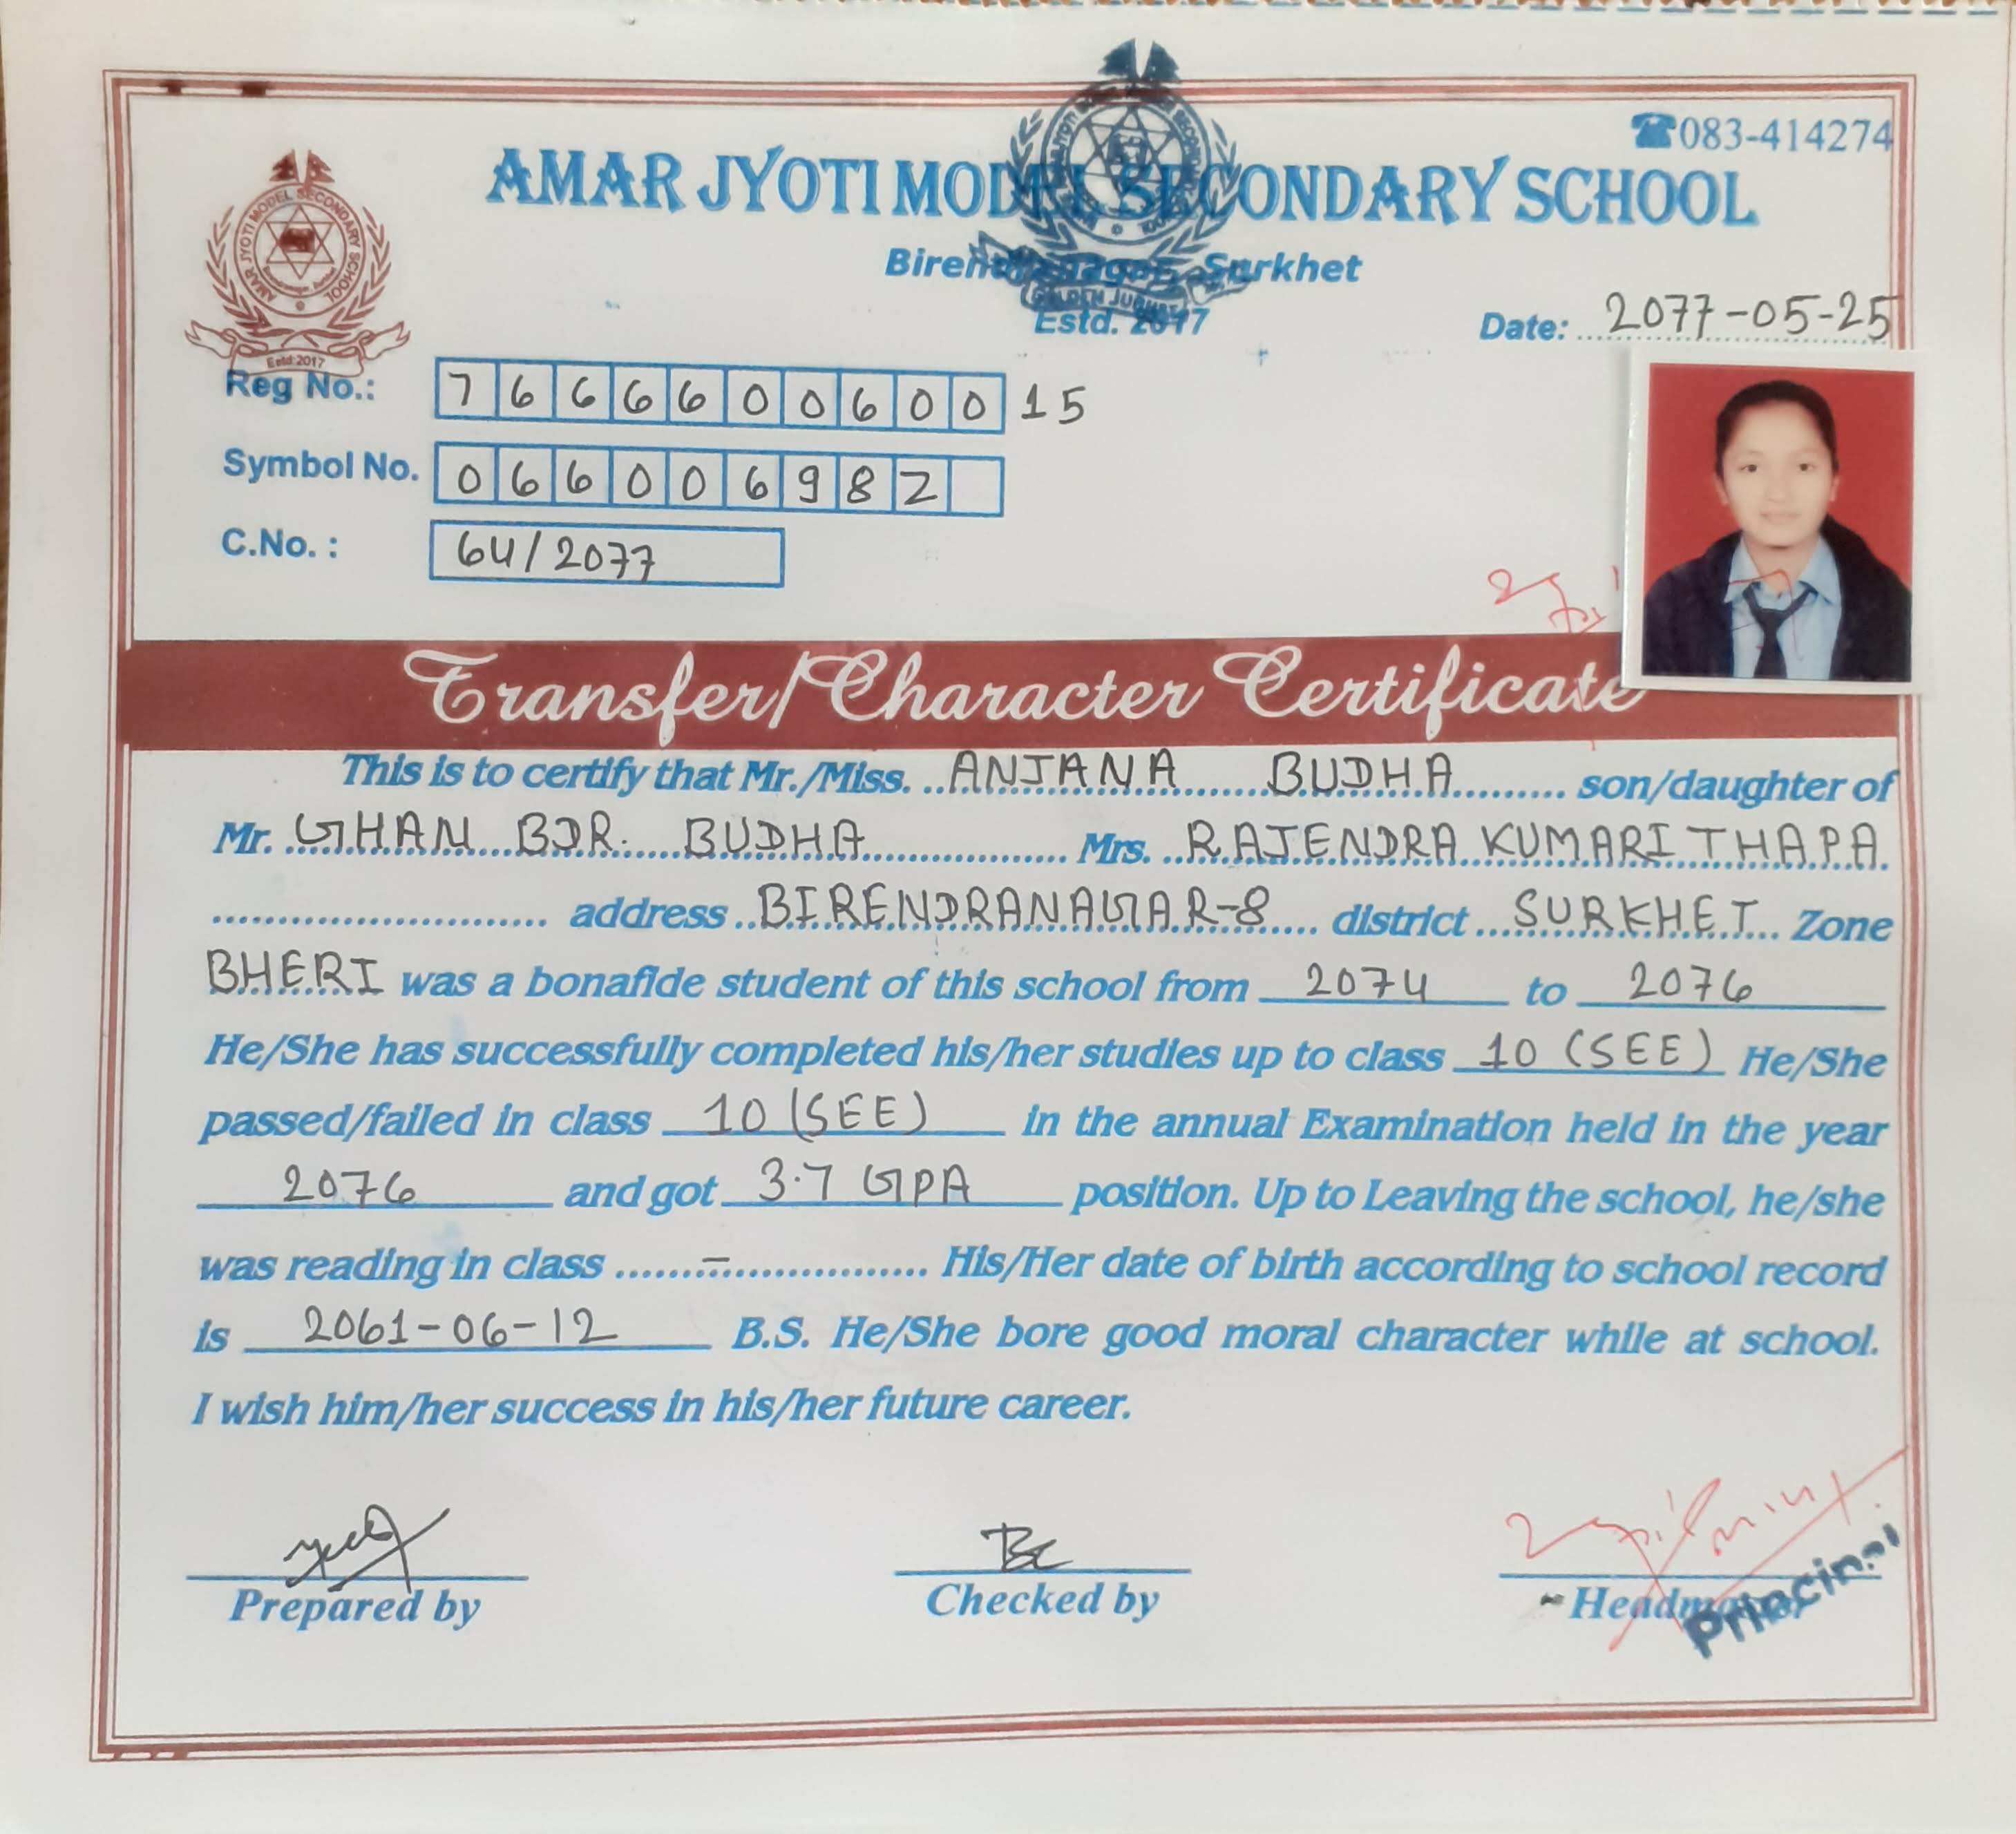 ☎083-414274
AMAR JYOTI MODEL SECONDARY SCHOOL
Birendranagar, Surkhet
Estd. 2017
Date: 2077-05-25
AMAR JYOTI MODEL SECONDARY SCHOOL
Estd:2017
GOLDEN JUBILEE
Reg No.: 766660060015
Symbol No. 066006982
C.No. : 64/2077
Transfer/Character Certificate
This is to certify that Mr./Miss. ANJANA BUDHA son/daughter of
Mr. GHAN BDR. BUDHA Mrs. RAJENDRA KUMARI THAPA
address BIRENDRANAGAR-8 district SURKHET Zone
BHERI was a bonafide student of this school from 2074 to 2076
He/She has successfully completed his/her studies up to class 10 (SEE) He/She
passed/failed in class 10 (SEE) in the annual Examination held in the year
2076 and got 3.7 GPA position. Up to Leaving the school, he/she
was reading in class - His/Her date of birth according to school record
is 2061-06-12 B.S. He/She bore good moral character while at school.
I wish him/her success in his/her future career.
Prepared by
Checked by
Headmaster
Principal